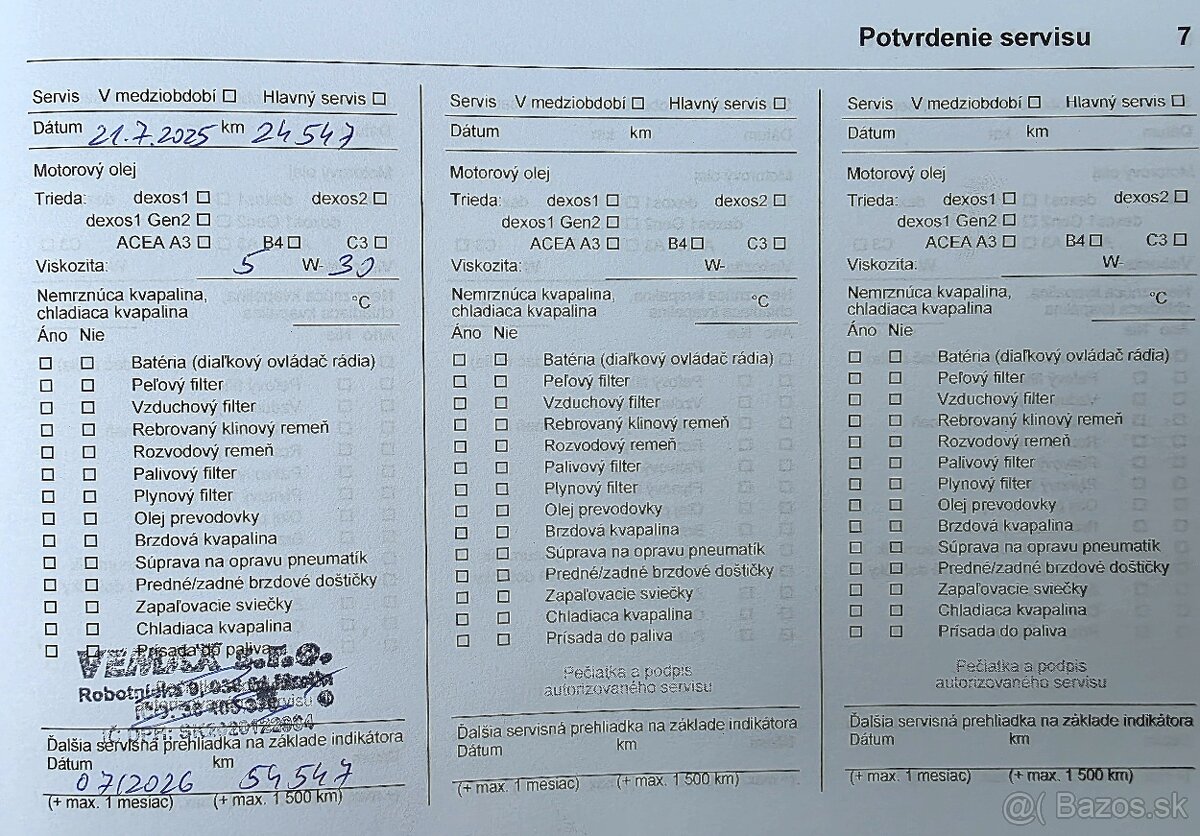 Potvrdenie servisu 7
Servis V medziobdobí ☐ Hlavný servis ☐
Dátum 21.7.2025 km 24 547
Motorový olej
Trieda: dexos1 ☐ dexos2 ☐
dexos1 Gen2 ☐
ACEA A3 ☐ B4 ☐ C3 ☐
Viskozita: 5 W- 30
Nemrznúca kvapalina, °C
chladiaca kvapalina
Áno Nie
☐ ☐ Batéria (diaľkový ovládač rádia)
☐ ☐ Peľový filter
☐ ☐ Vzduchový filter
☐ ☐ Rebrovaný klinový remeň
☐ ☐ Rozvodový remeň
☐ ☐ Palivový filter
☐ ☐ Plynový filter
☐ ☐ Olej prevodovky
☐ ☐ Brzdová kvapalina
☐ ☐ Súprava na opravu pneumatík
☐ ☐ Predné/zadné brzdové doštičky
☐ ☐ Zapaľovacie sviečky
☐ ☐ Chladiaca kvapalina
☐ ☐ Prísada do paliva
s.r.o.
Robotnícka
servisu
IČ DPH:
Ďalšia servisná prehliadka na základe indikátora
Dátum km
07/2026 54 547
(+ max. 1 mesiac) (+ max. 1 500 km)
Servis V medziobdobí ☐ Hlavný servis ☐
Dátum km
Motorový olej
Trieda: dexos1 ☐ dexos2 ☐
dexos1 Gen2 ☐
ACEA A3 ☐ B4 ☐ C3 ☐
Viskozita: W-
Nemrznúca kvapalina, °C
chladiaca kvapalina
Áno Nie
☐ ☐ Batéria (diaľkový ovládač rádia)
☐ ☐ Peľový filter
☐ ☐ Vzduchový filter
☐ ☐ Rebrovaný klinový remeň
☐ ☐ Rozvodový remeň
☐ ☐ Palivový filter
☐ ☐ Plynový filter
☐ ☐ Olej prevodovky
☐ ☐ Brzdová kvapalina
☐ ☐ Súprava na opravu pneumatík
☐ ☐ Predné/zadné brzdové doštičky
☐ ☐ Zapaľovacie sviečky
☐ ☐ Chladiaca kvapalina
☐ ☐ Prísada do paliva
Pečiatka a podpis
autorizovaného servisu
Ďalšia servisná prehliadka na základe indikátora
Dátum km
(+ max. 1 mesiac) (+ max. 1 500 km)
Servis V medziobdobí ☐ Hlavný servis ☐
Dátum km
Motorový olej
Trieda: dexos1 ☐ dexos2 ☐
dexos1 Gen2 ☐
ACEA A3 ☐ B4 ☐ C3 ☐
Viskozita: W-
Nemrznúca kvapalina, °C
chladiaca kvapalina
Áno Nie
☐ ☐ Batéria (diaľkový ovládač rádia)
☐ ☐ Peľový filter
☐ ☐ Vzduchový filter
☐ ☐ Rebrovaný klinový remeň
☐ ☐ Rozvodový remeň
☐ ☐ Palivový filter
☐ ☐ Plynový filter
☐ ☐ Olej prevodovky
☐ ☐ Brzdová kvapalina
☐ ☐ Súprava na opravu pneumatík
☐ ☐ Predné/zadné brzdové doštičky
☐ ☐ Zapaľovacie sviečky
☐ ☐ Chladiaca kvapalina
☐ ☐ Prísada do paliva
Pečiatka a podpis
autorizovaného servisu
Ďalšia servisná prehliadka na základe indikátora
Dátum km
(+ max. 1 mesiac) (+ max. 1 500 km)
@( Bazos.sk